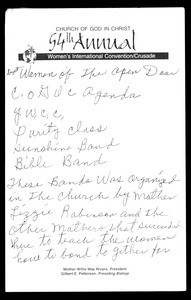 CHURCH OF GOD IN CHRIST
54th Annual
Women's International Convention/Crusade
Women of the Open Dear
C.O.G.I.C Agenda
Y.W.C.C,
Purity Class
Sunshine Band
Bible Band
These Bands Was Organized
in the Church by Mother
Lizzie Robinson and the
other Mothers that succeeded
her to teach the women
how to bond together for
Mother Willie Mae Rivers, President
Gilbert E. Patterson, Presiding Bishop